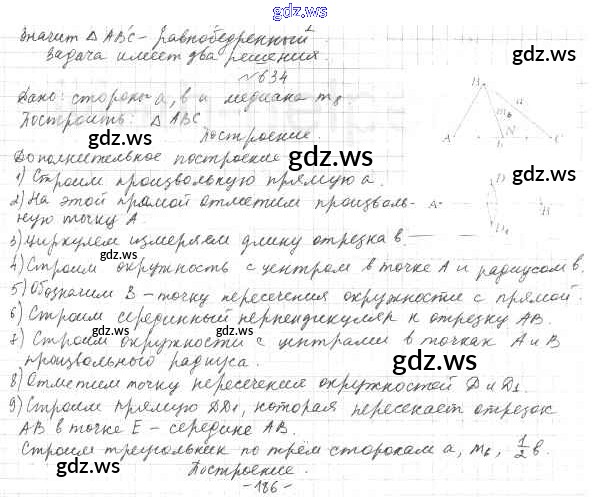 gdz.ws
Значит △ABC - равнобедренный.
Задача имеет два решения.
gdz.ws
№ 634
Дано: стороны a, b и медиана m_b
Построить: △ABC
Построение.
B a m_b N A b C
gdz.ws
Дополнительное построение
gdz.ws
1) Строим произвольную прямую a.
gdz.ws
2) На этой прямой отметим произволь-
ную точку A.
A D B D₁
3) Циркулем измеряем длину отрезка b.
gdz.ws
4) Строим окружность с центром в точке A и радиусом b.
5) Обозначим B - точку пересечения окружности с прямой.
6) Строим серединный перпендикуляр к отрезку AB.
gdz.ws
gdz.ws
7) Строим окружности с центрами в точках A и B
произвольного радиуса.
gdz.ws
8) Отметим точку пересечения окружностей D и D₁.
9) Строим прямую DD₁, которая пересекает отрезок
gdz.ws
AB в точке E - середине AB.
Строим треугольник по трём сторонам a, m_b, 1/2 b.
gdz.ws
Построение.
- 186 -
gdz.ws